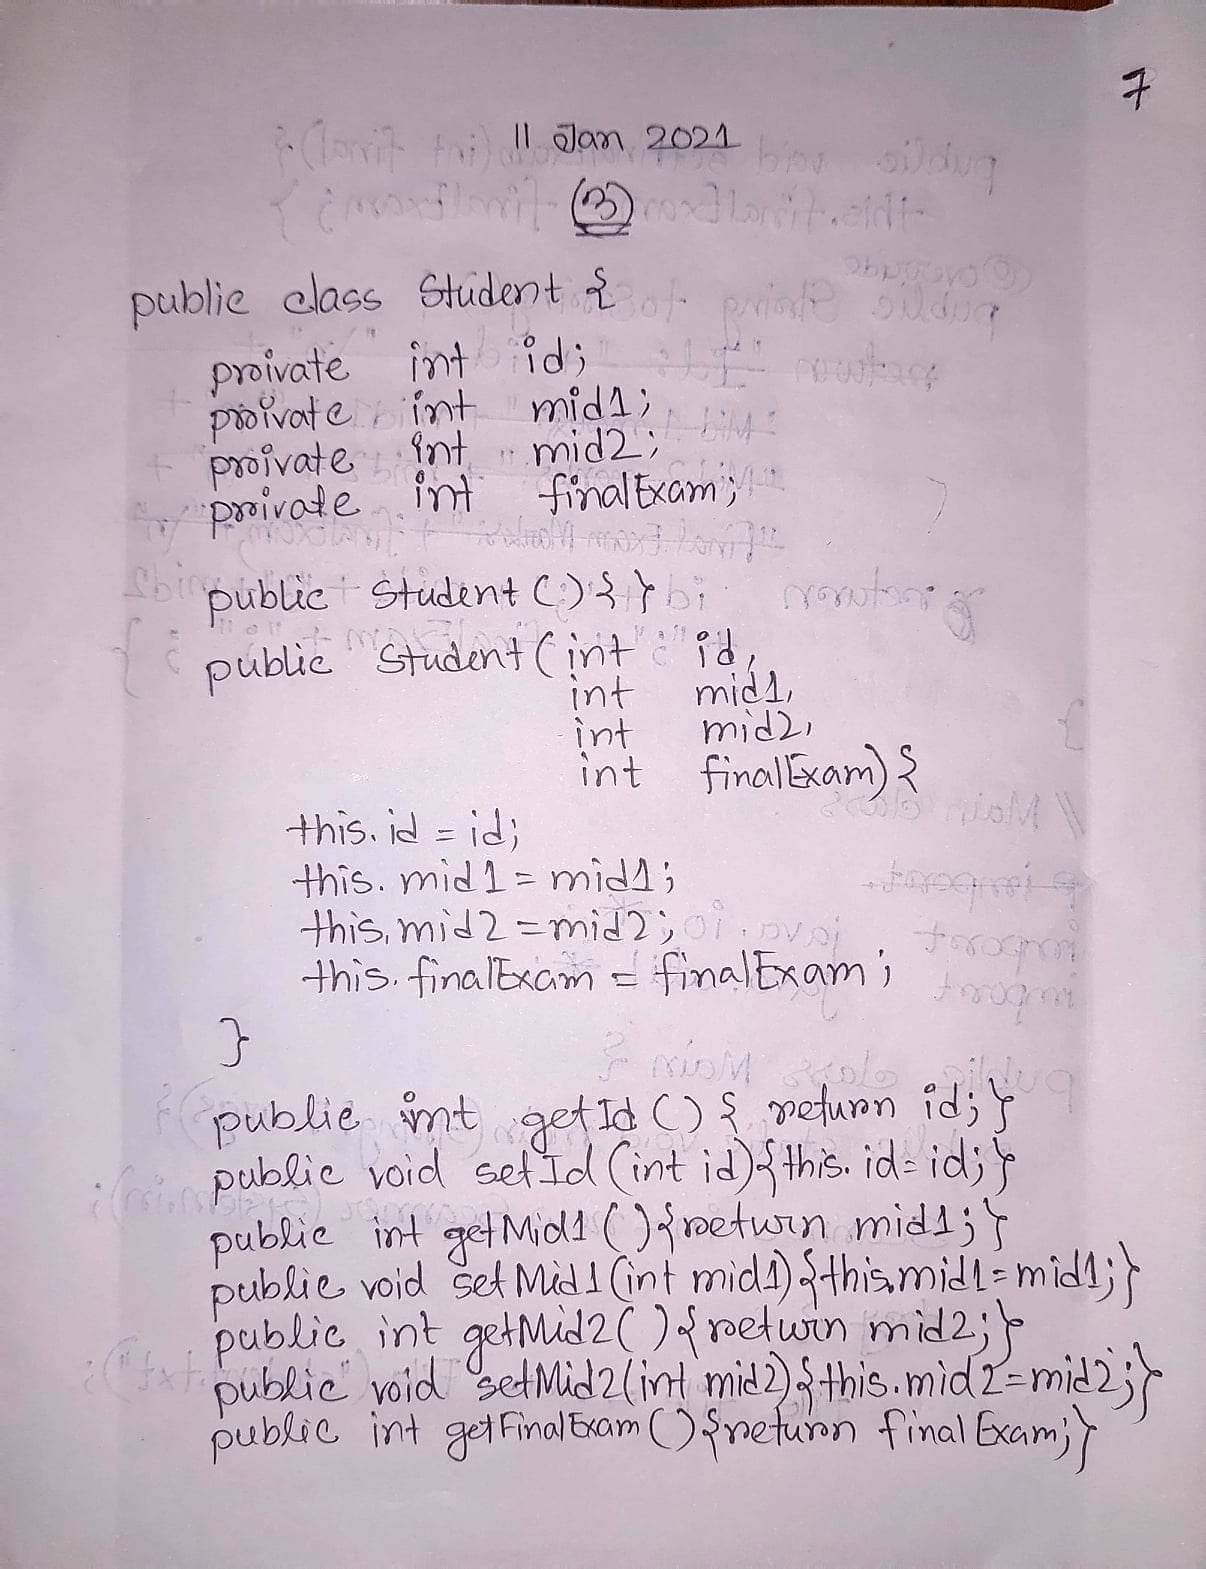 7
11 Jan 2021
(3)
public class Student {
private int id;
private int mid1;
private int mid2;
private int finalExam;
public Student () { }
public Student (int id,
int mid1,
int mid2,
int finalExam) {
this.id = id;
this.mid1 = mid1;
this.mid2 = mid2;
this.finalExam = finalExam;
}
public int getId () { return id; }
public void setId (int id) { this.id = id; }
public int getMid1 () { return mid1; }
public void setMid1 (int mid1) { this.mid1 = mid1; }
public int getMid2 ( ) { return mid2; }
public void setMid2 (int mid2) { this.mid2 = mid2; }
public int getFinalExam () { return finalExam; }